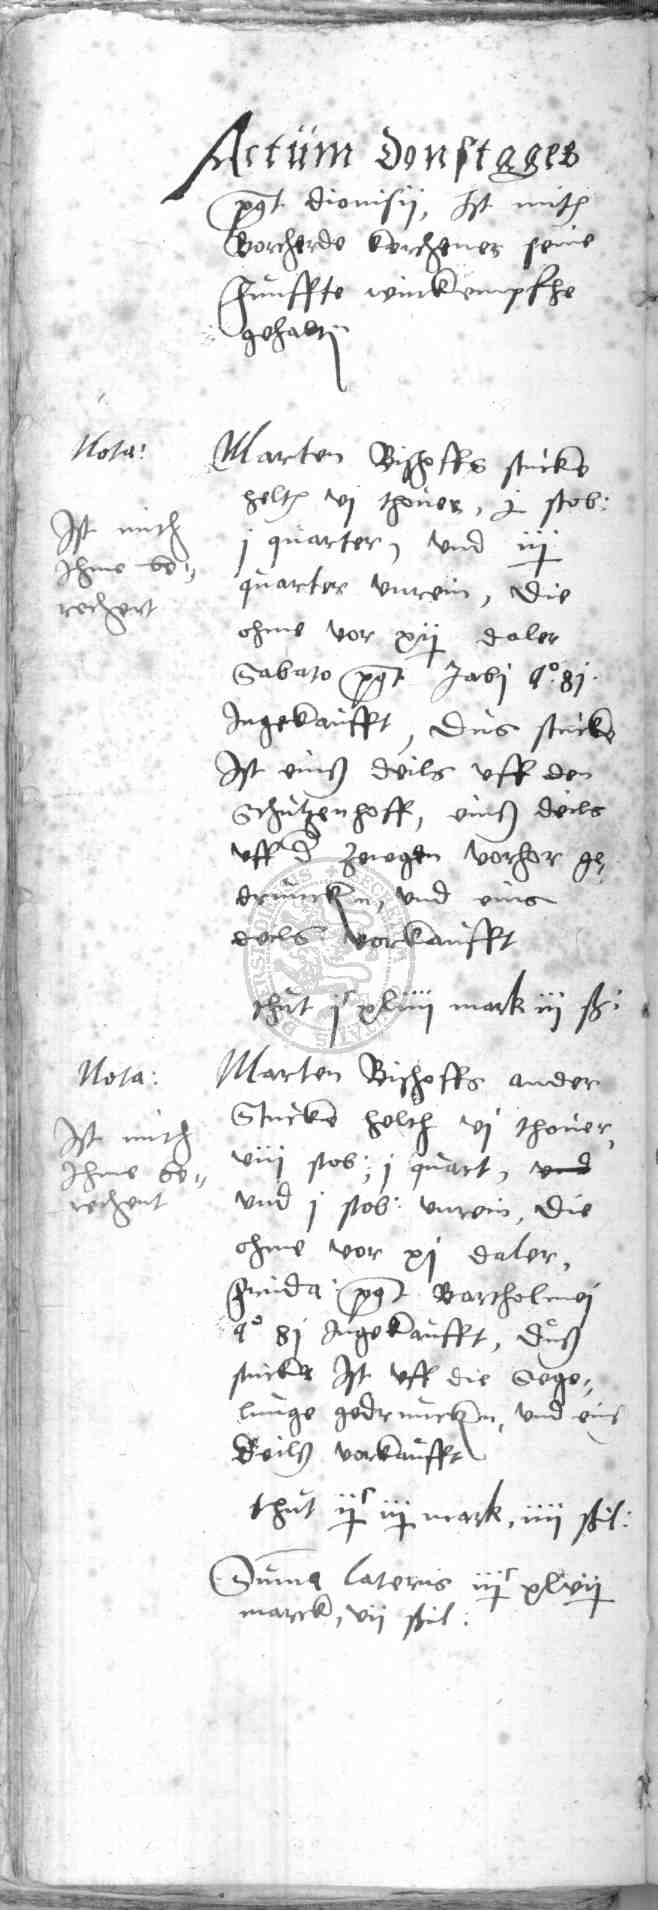 Actum donstages
post dionisij, Ist mith
Borcherde kerchener seine
funffte winkempfhe
gehalten
Nota:
Ist mith
Ihme be-
rechent
Marten Bischoffs stucke
helth vj thouer, j stob:
j quarter, vnd iij
quarter vnrein, die
ohme vor xij daler
Sabato post Jacobj ao 81.
Ingekaufft, dus stucke
Ist einß deils vff den
Schutzenhoff, einß deils
vff d zewgen vorhor ge-
druncken, vnd eins
deils vorkaufft
thut jc xliiij mark iij ß:
Nota:
Ist mith
Ihme be-
rechent
Marten Bischoffs ander
Stucke helth vj thouer,
viij stob: j quart, vnd
vnd j stob: vnrein, die
ohme vor xj daler,
post Bartholmej
ao 81 Ingekaufft, duß
stucke Ist vff die Sege-
lunge gedruncken, vnd eins
deilß vorkaufft
thut ijc iij mark, iiij ßil:
Suma lateris iijc xlvij
marck, vij ßil: